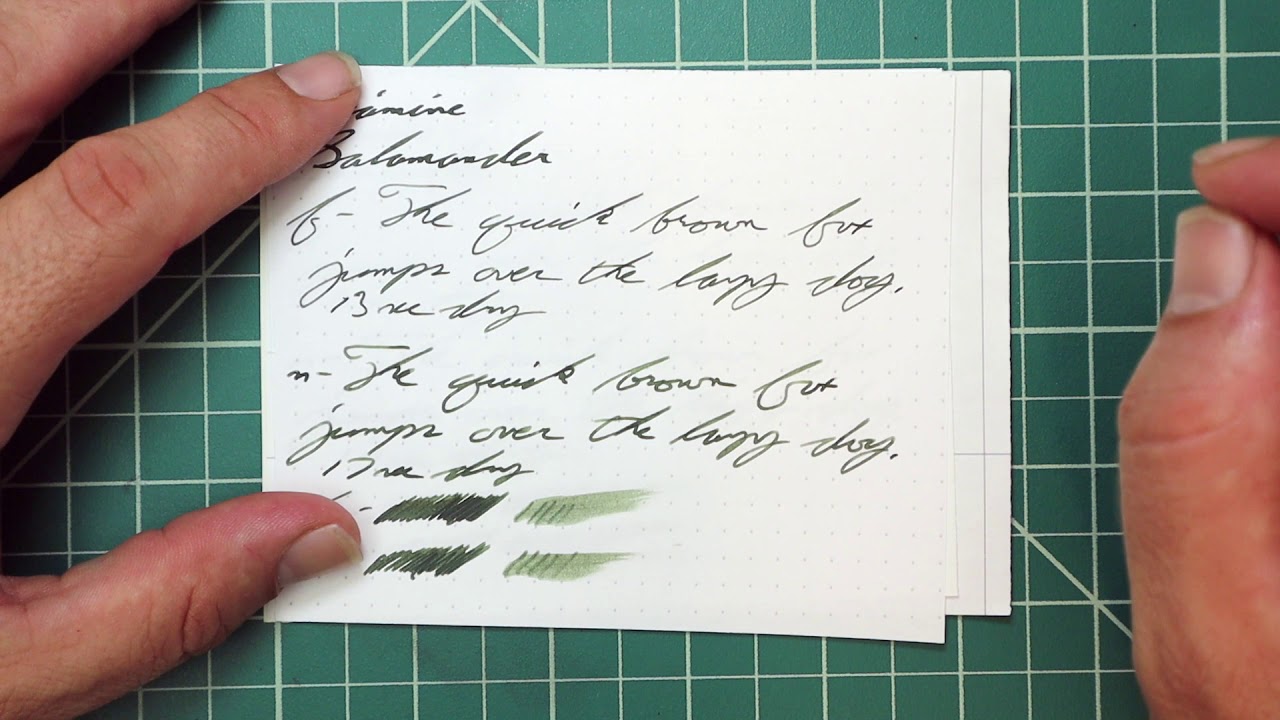 iamine
Salamander
f- The quick brown fox
jumps over the lazy dog.
13 sec dry
m- The quick brown fox
jumps over the lazy dog.
17 sec dry